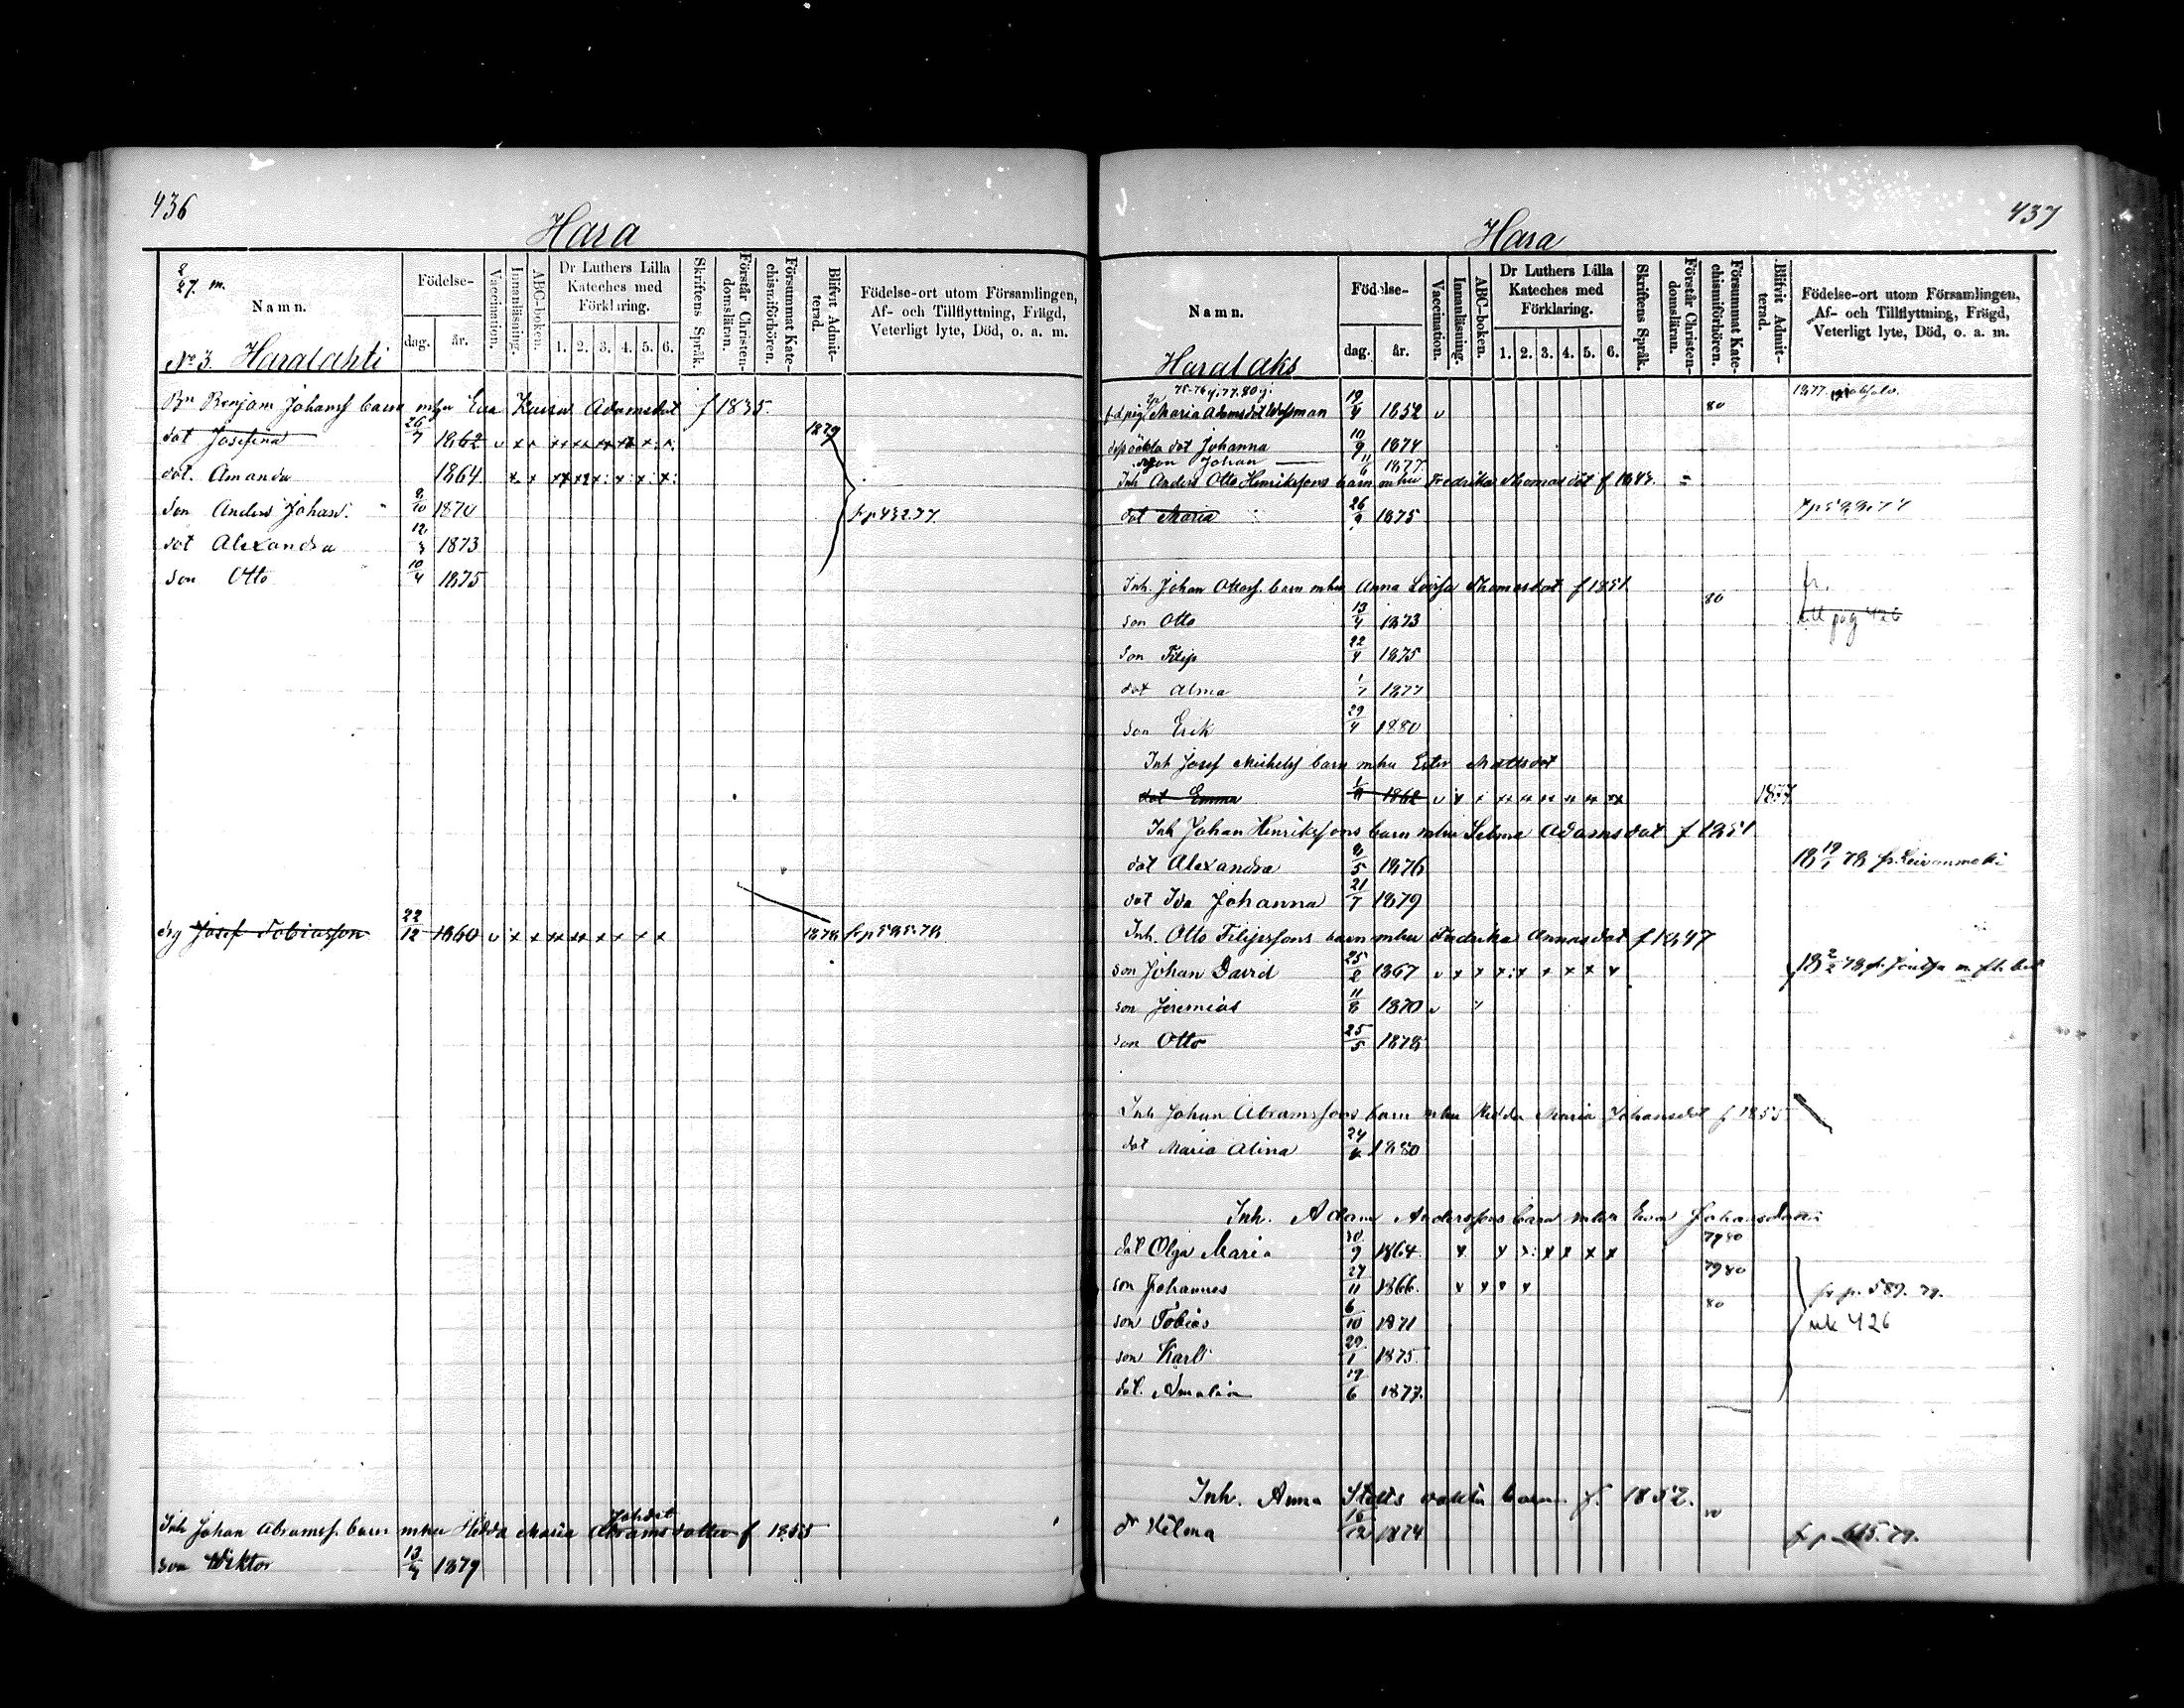 436
Hara
Namn.
Födelse-
dag.
år.
Vaccination.
Innanläsning.
ABC-boken.
Dr Luthers Lilla
Kateches med
Förklaring.
1. 2. 3. 4. 5. 6.
Skriftens Språk.
Förstår Christen-
domsläran.
Försummat Kate-
chismiförhören.
Blifvit Admit-
terad.
Födelse-ort utom Församlingen,
Af- och Tillflyttning, Frägd,
Veterligt lyte, Död, o. a. m.
No 3. Haralahti
Benjam Johanss barn mhu Eva Adamsdot f 1835.
dot Josefina 26/7 1862 v x x xx xx xx xx x x 1879
dot. Amanda 1864
son Anders Johan 1870 fr p 432.77.
dot Alexandra 12/3 1873
son Otto 10/4 1875
drg Josef Tobiasson 22/12 1860 v x x xx xx x x x x 1878
Inh Johan Abramss. barn mhu Hedda Maria Johsdot Abramsdotter f 1855
son Wiktor 13/4 1879
437
Hara
Namn.
Födelse-
dag.
år.
Vaccination.
Innanläsning.
ABC-boken.
Dr Luthers Lilla
Kateches med
Förklaring.
1. 2. 3. 4. 5. 6.
Skriftens Språk.
Förstår Christen-
domsläran.
Försummat Kate-
chismiförhören.
Blifvit Admit-
terad.
Födelse-ort utom Församlingen,
Af- och Tillflyttning, Frägd,
Veterligt lyte, Död, o. a. m.
Haralaks
Maria 19/4 1852 v 80
dot Johanna 10/9 1874
son Johan 11/6 1877.
Inh Anders Otto Henrikssons barn mhu Fredrika Thomasdot
dot Maria 26/9 1875
Inh. Johan Ottoss. barn mhu Anna Lovisa Thomasdot f 1851 80
till pag 426
son Otto 13/4 1873
son Filip 22/4 1875
dot Alma 1/7 1877
son Erik 29/4 1880
Inh Josef Michelss barn mhu Ester Mattsdot
dot Emma 1862 1877
Inh Johan Henrikssons barn mhu Selma Adamsdot f 1851
dot Alexandra 8/5 1876 18 19/1 78 fr. Leivonmäki
dot Ida Johanna 21/7 1879
Inh. Otto Filipssons barn mhu Fredrika Annasdot f 1847
son Johan David 25/2 1867 v x x x:x x x x x 18 2/2 78 fr. Joutsa
son Jeremias 11/8 1870 v
son Otto 25/5 1878
Inh Johan Abramssons barn mhu Hedda Maria Johansdot f 1855
dot Maria Alina 24/6 1880
Inh. Adam Anderssons barn mhu Eva
dot Olga Maria 30/9 1864. 79 80
son Johannes 27/11 1866. x x x x 79 80 fr p. 589. 79.
son Tobias 6/10 1871 80 426
son Karl 29/1 1875.
dot. Amalia 19/6 1877.
Inh. Anna barn f. 1852.
dr Hilma 16/12 1874 fr p 615. 79.